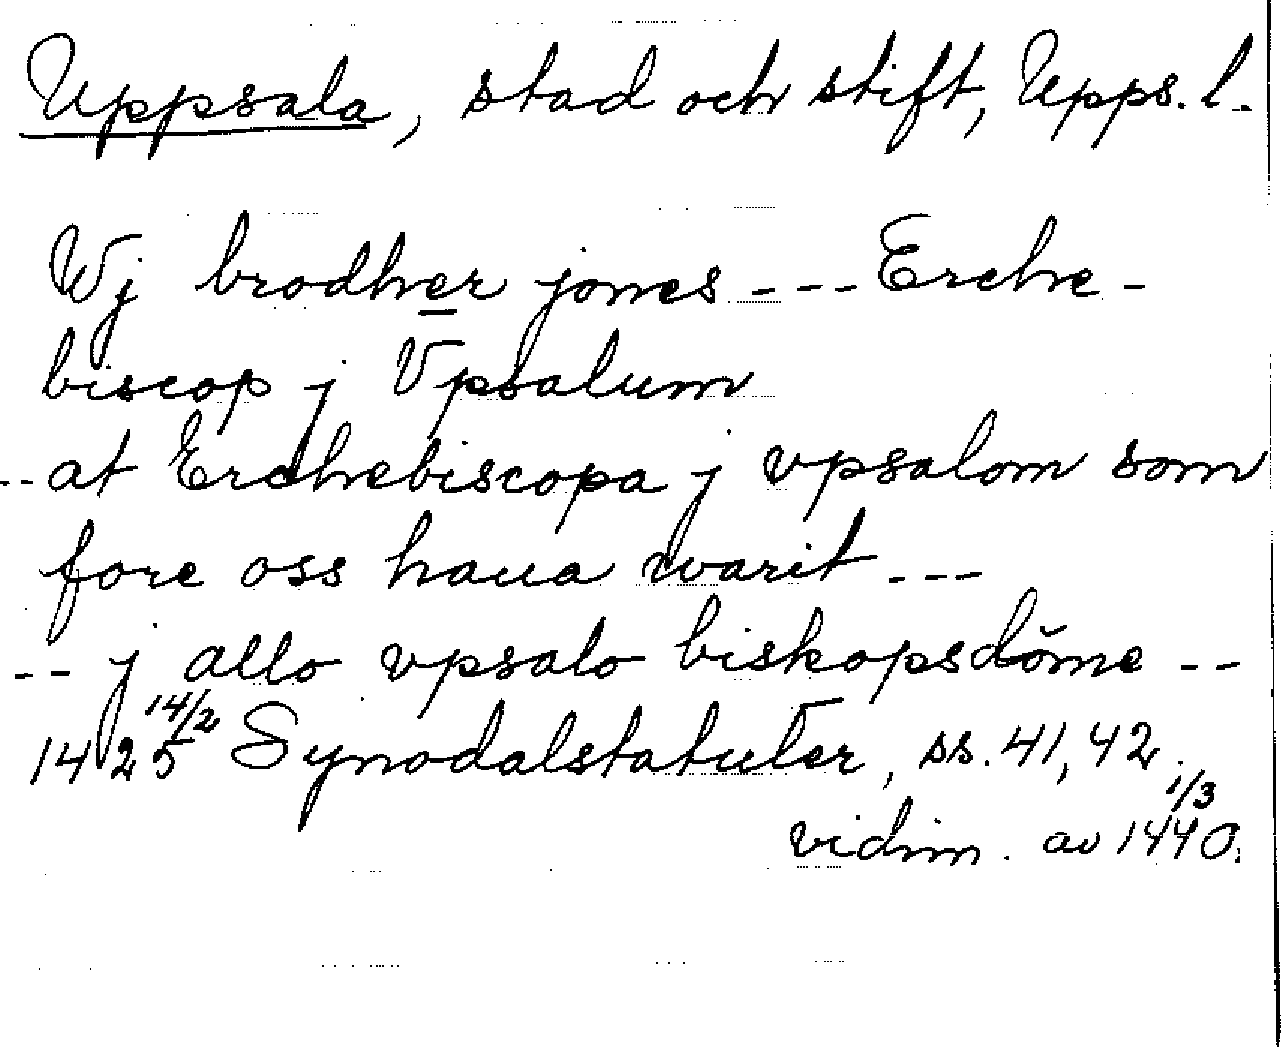 Uppsala, stad och stift, Upps. l.
Wj brodher jones --- Erche-
biscop j Vpsalum
-- at Erchebiscopa j vpsalom som
fore oss haua warit ---
-- j allo vpsalo biskopsdǒme --
1425 14/2 Synodalstatuter, ss. 41, 42.
vidim. av 1440 1/3.